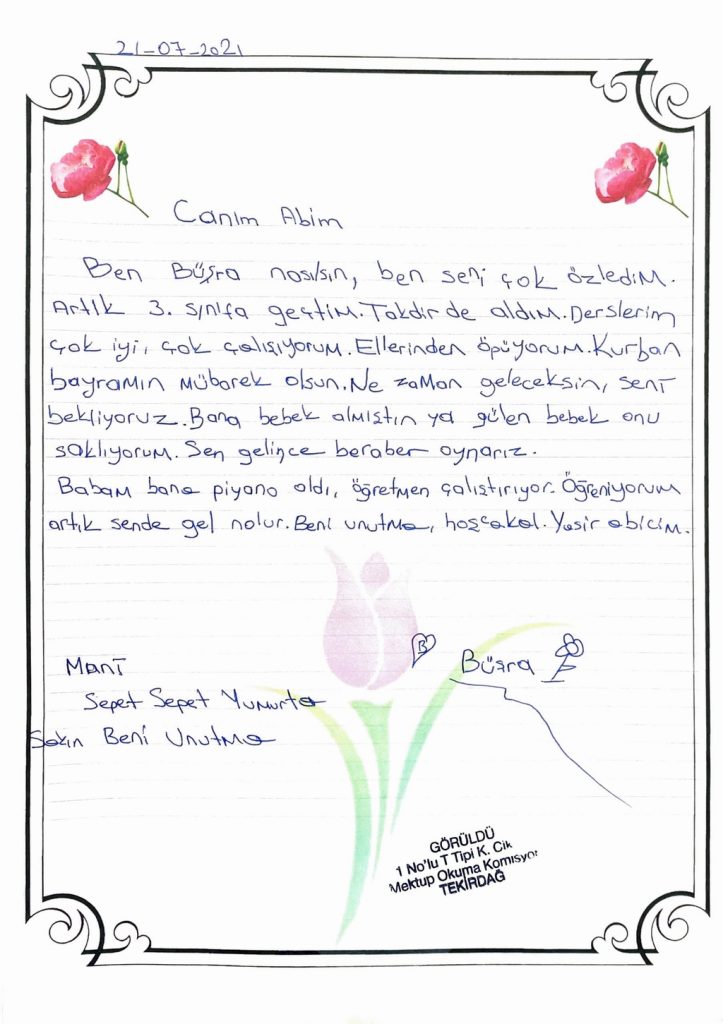 21-07-2021
Canım Abim
Ben Büşra nasılsın, ben seni çok özledim.
Artık 3. sınıfa geçtim. Takdir de aldım. Derslerim
çok iyi, çok çalışıyorum. Ellerinden öpüyorum. Kurban
bayramın mübarek olsun. Ne zaman geleceksin, seni
bekliyoruz. Bana bebek almıştın ya gülen bebek onu
saklıyorum. Sen gelince beraber oynarız.
Babam bana piyano aldı, öğretmen çalıştırıyor. Öğreniyorum
artık sende gel nolur. Beni unutma, hoşcakal. Yasir abicim.
B
Büşra
Mani
Sepet Sepet Yumurta
Sakın Beni Unutma
GÖRÜLDÜ
1 No'lu T Tipi K. Cik
Mektup Okuma Komisyor
TEKİRDAĞ